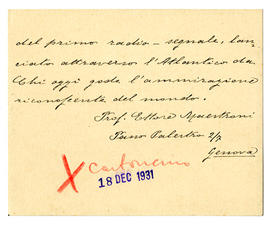 del primo radio-segnale, lan-
ciato attraverso l'Atlantico da
Chi oggi gode l'ammirazione
riconoscente del mondo.
Prof. Ettore Maestroni
Piano Palestro 2/7
Genova
X Cartoncino
18 DEC 1931